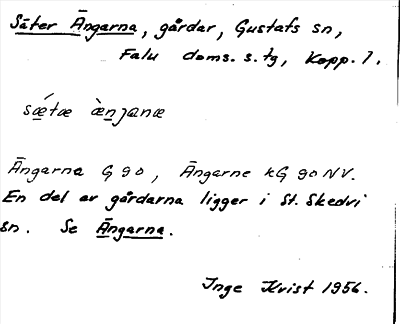 Säter Ängarna, gårdar, Gustafs sn,
Falu doms. s. tg, Kopp. l.
sǽtæ ænjanæ
Ängarna G 90, Ängarne kG 90 NV.
En del av gårdarna ligger i St. Skedvi
sn. Se Ängarna.
Inge Kvist 1956.